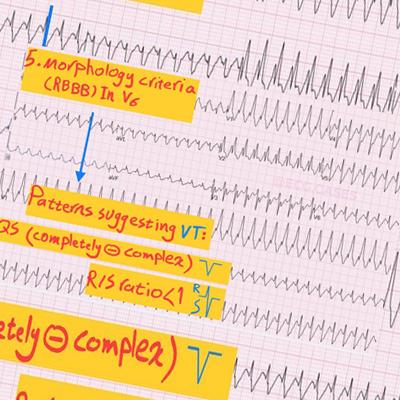 5. morphology criteria
(RBBB) In V6
Patterns suggesting VT:
QS (completely ⊖ complex)
R/S ratio < 1 R
S
etely ⊖ complex)